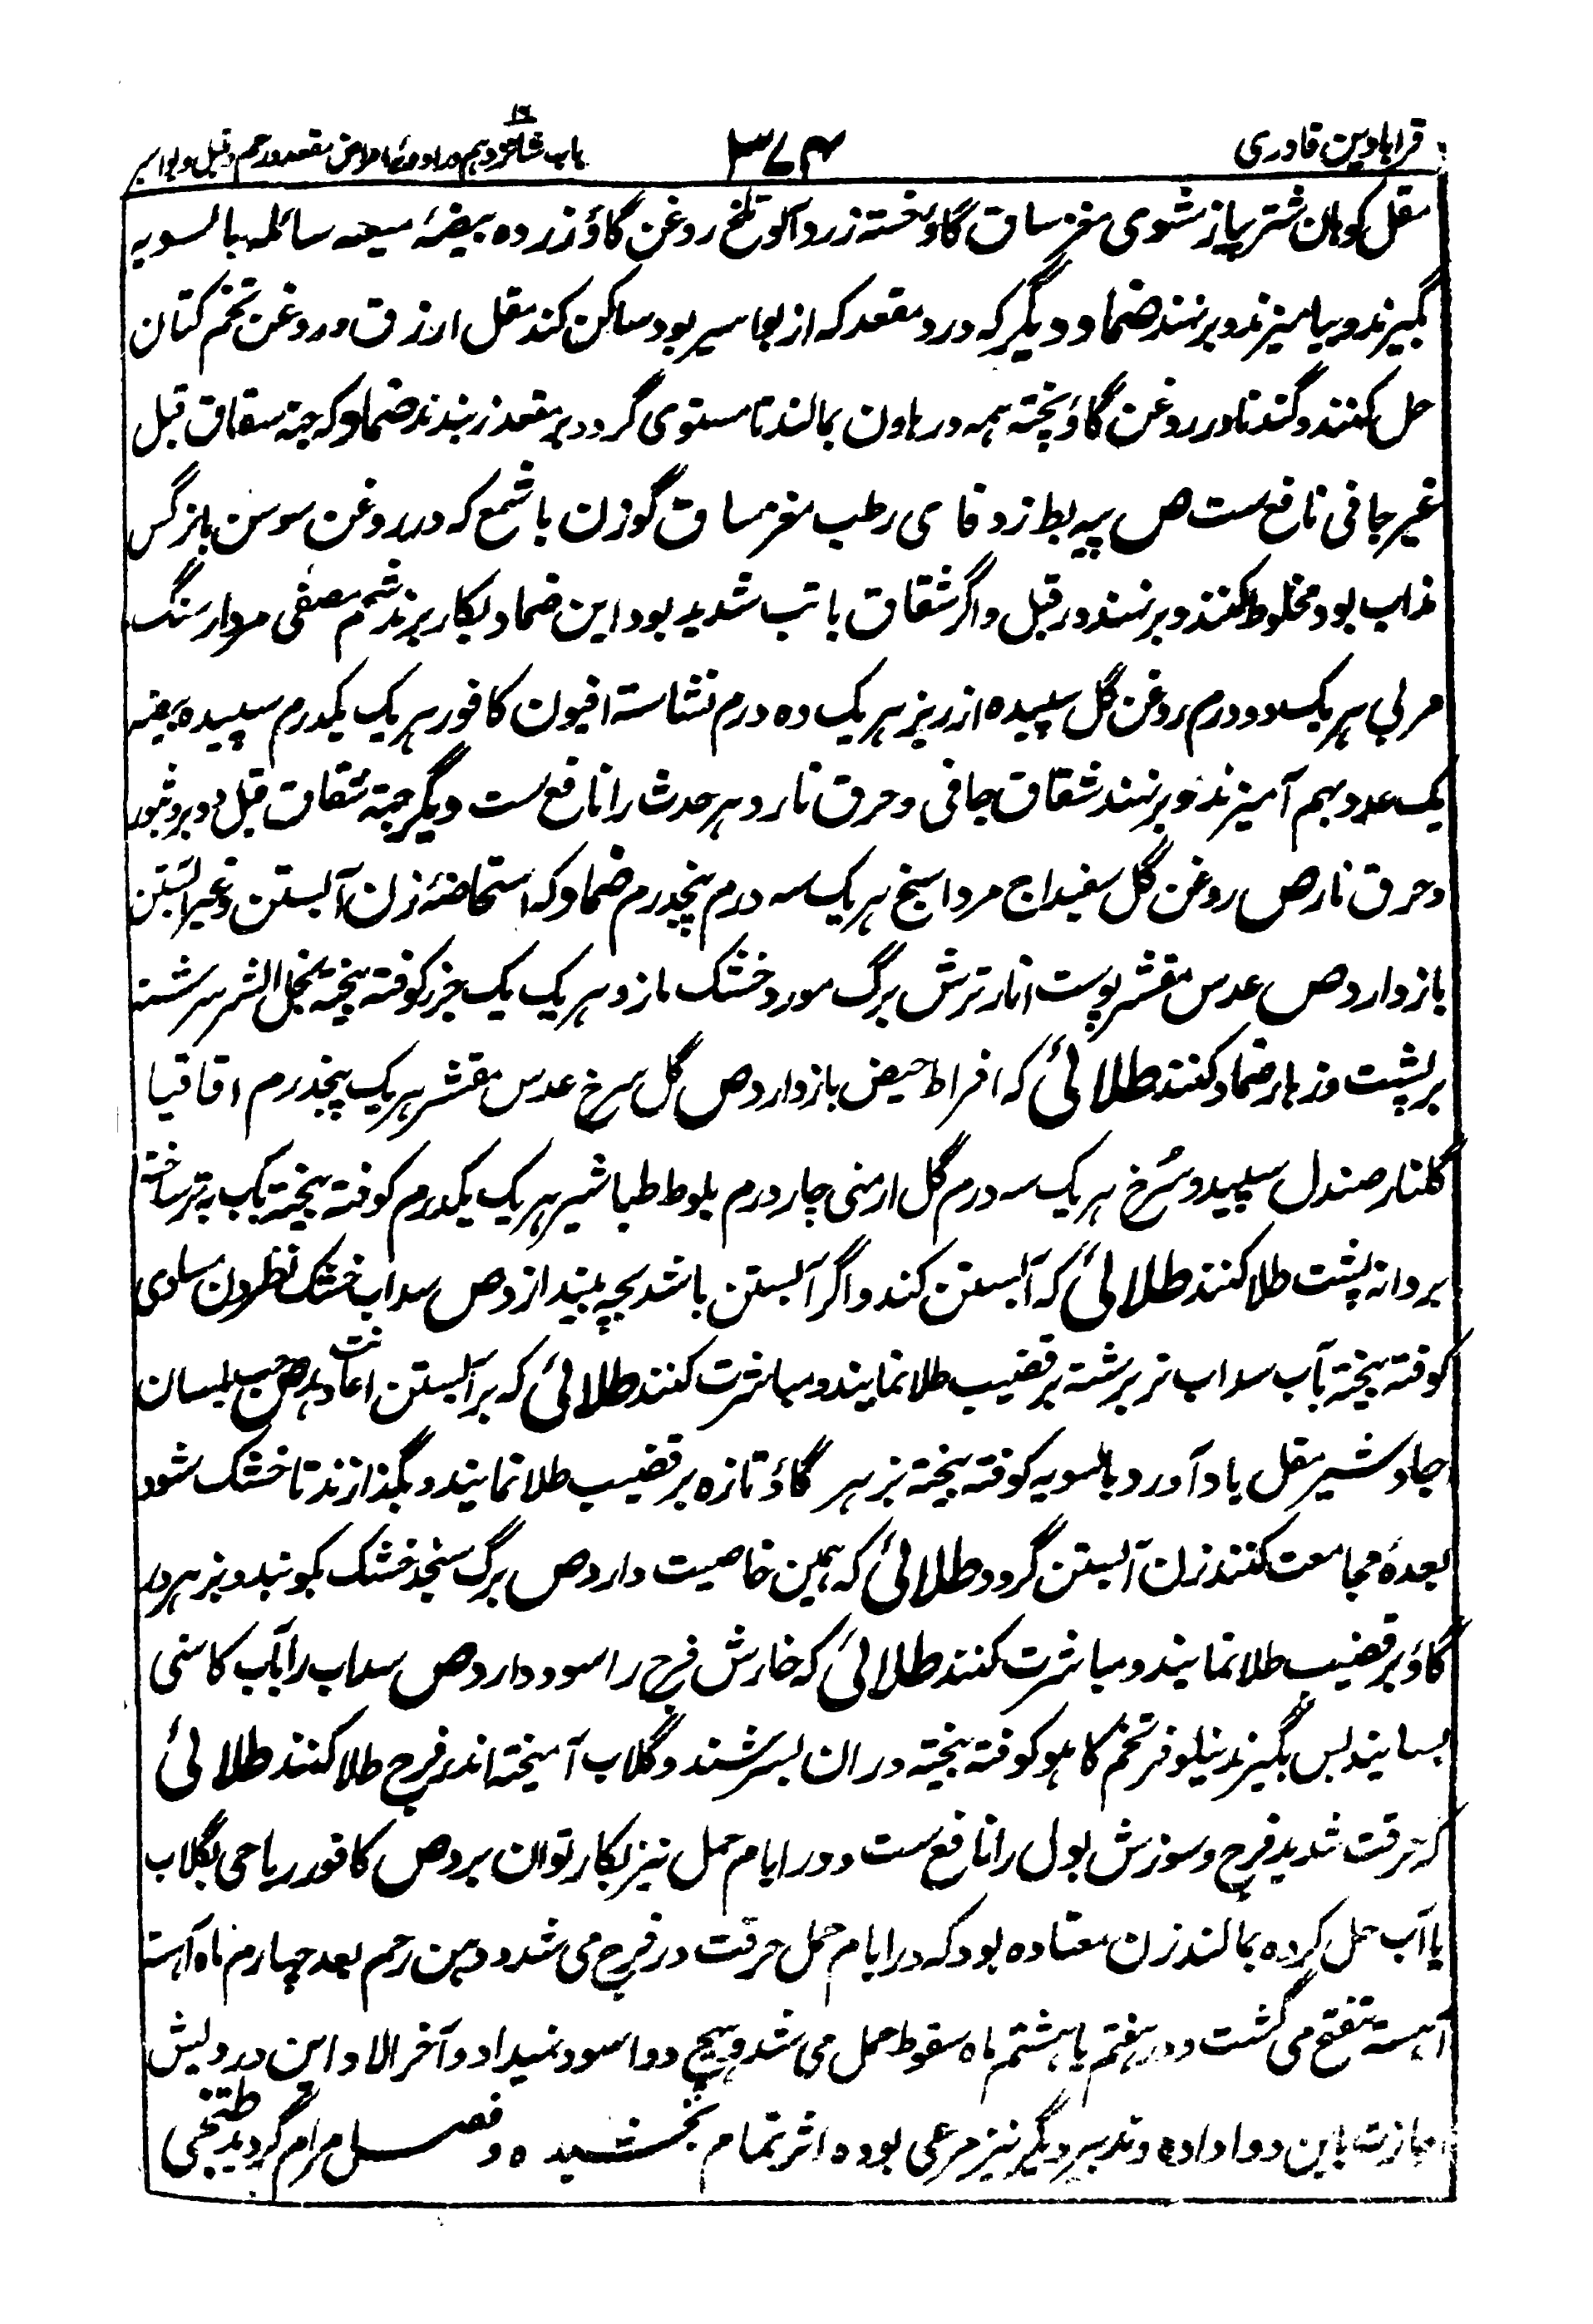 قرابادین قادری
۳۷۴
باب شانزدهم در ادویهٔ امراض مقعد و رحم و قبل و بواسیر
۱۶
مقل کوهان شتر پیاز مشوی مغز ساق گاو خسته زردآلو تلخ روغن گاؤ زرده بیضهٔ میعه سائله بالسویه
بگیرند و بیامیزند و برنهند ضماد دیگر که درد مقعد که از بواسیر بود ساکن کند مقل ازرق در روغن تخم کتان
حل کنند و گندنا در روغن گاؤ پخته همه در هاون بمالند تا مستوی گردد بر مقعد نهند ضماد که جهة شقاق قبل
غیر جافی نافع ست ص پیه بط زوفای رطب مغز ساق گوزن با شمع که در روغن سوسن یا نرگس
مذاب بود مخلوط کنند و برنهند در قبل و اگر شقاق با تب شدید بود این ضماد بکار برند شمع مصفی مردارسنگ
مربی هر یک دو درم روغن گل سپیده ارزیز هر یک ده درم نشاسته افیون کافور هر یک یکدرم سپیده بیضه
یک عدد بهم آمیزند و برنهند شقاق جافی و حرق نار و هر حدث را نافع ست دیگر جهة شقاق قبل و دبر و بثور
و حرق نار ص روغن گل سفیداج مرداسنج هر یک سه درم پنجدرم ضماد که استحاضهٔ زن آبستن و غیر آبستن
بازدارد ص عدس مقشر پوست انار ترش برگ مورد خشک مازو هر یک یک جزر کوفته بیخته بخل الشر سرشته
بر پشت و زهار ضماد کنند طلائی که افراط حیض بازدارد ص گل سرخ عدس مقشر هر یک پنجدرم اقاقیا
گلنار صندل سپید و سُرخ هر یک سه درم گل ارمنی چار درم بلوط طباشیر هر یک یکدرم کوفته بیخته بآب به تر ساخته
بر وانه پشت طلا کنند طلائی که آبستن کند و اگر آبستن باشد بچه بیندازد ص سداب خشک نطرون مساوی
کوفته بیخته بآب سداب تر برشته بر قضیب طلا نمایند و مباشرت کنند طلائی که بر آبستن اعانت دهد ص حب بلسان
جاوشیر مقل یادآورد بالسویه کوفته بیخته بزهر گاؤ تازه بر قضیب طلا نمایند و بگذارند تا خشک شود
بعدهٔ مجامعت کنند زن آبستن گردد طلائی که همین خاصیت دارد ص برگ سنجد خشک بکوبند و بزهره
گاؤ بر قضیب طلا نمایند و مباشرت کنند طلائی که خارش فرج را سود دارد ص سداب را بآب کاسنی
بسایند پس بگیرند نیلوفر تخم کاهو کوفته بیخته دران بسرشند و گلاب آمیخته اندر فرج طلا کنند طلائی
که حرقت شدید فرج و سوزش بول را نافع ست و در ایام حمل نیز بکار توان برد ص کافور ریاحی بگلاب
یا آب حل کرده بمالند زن معتاده بود که در ایام حمل حرقت در فرج می شد و دهن رحم بعد چهارم ماه آهسته
آهسته منفتح می گشت و در هفتم یا هشتم ماه سقوط حمل می شد و هیچ دوا سود نمیداد و آخر الامر این درویش
اجازت باین دوا داده و تدبیر دیگر نیز مرعی بوده اثر تمام بخشیده و فصل مرام گردید طبخی